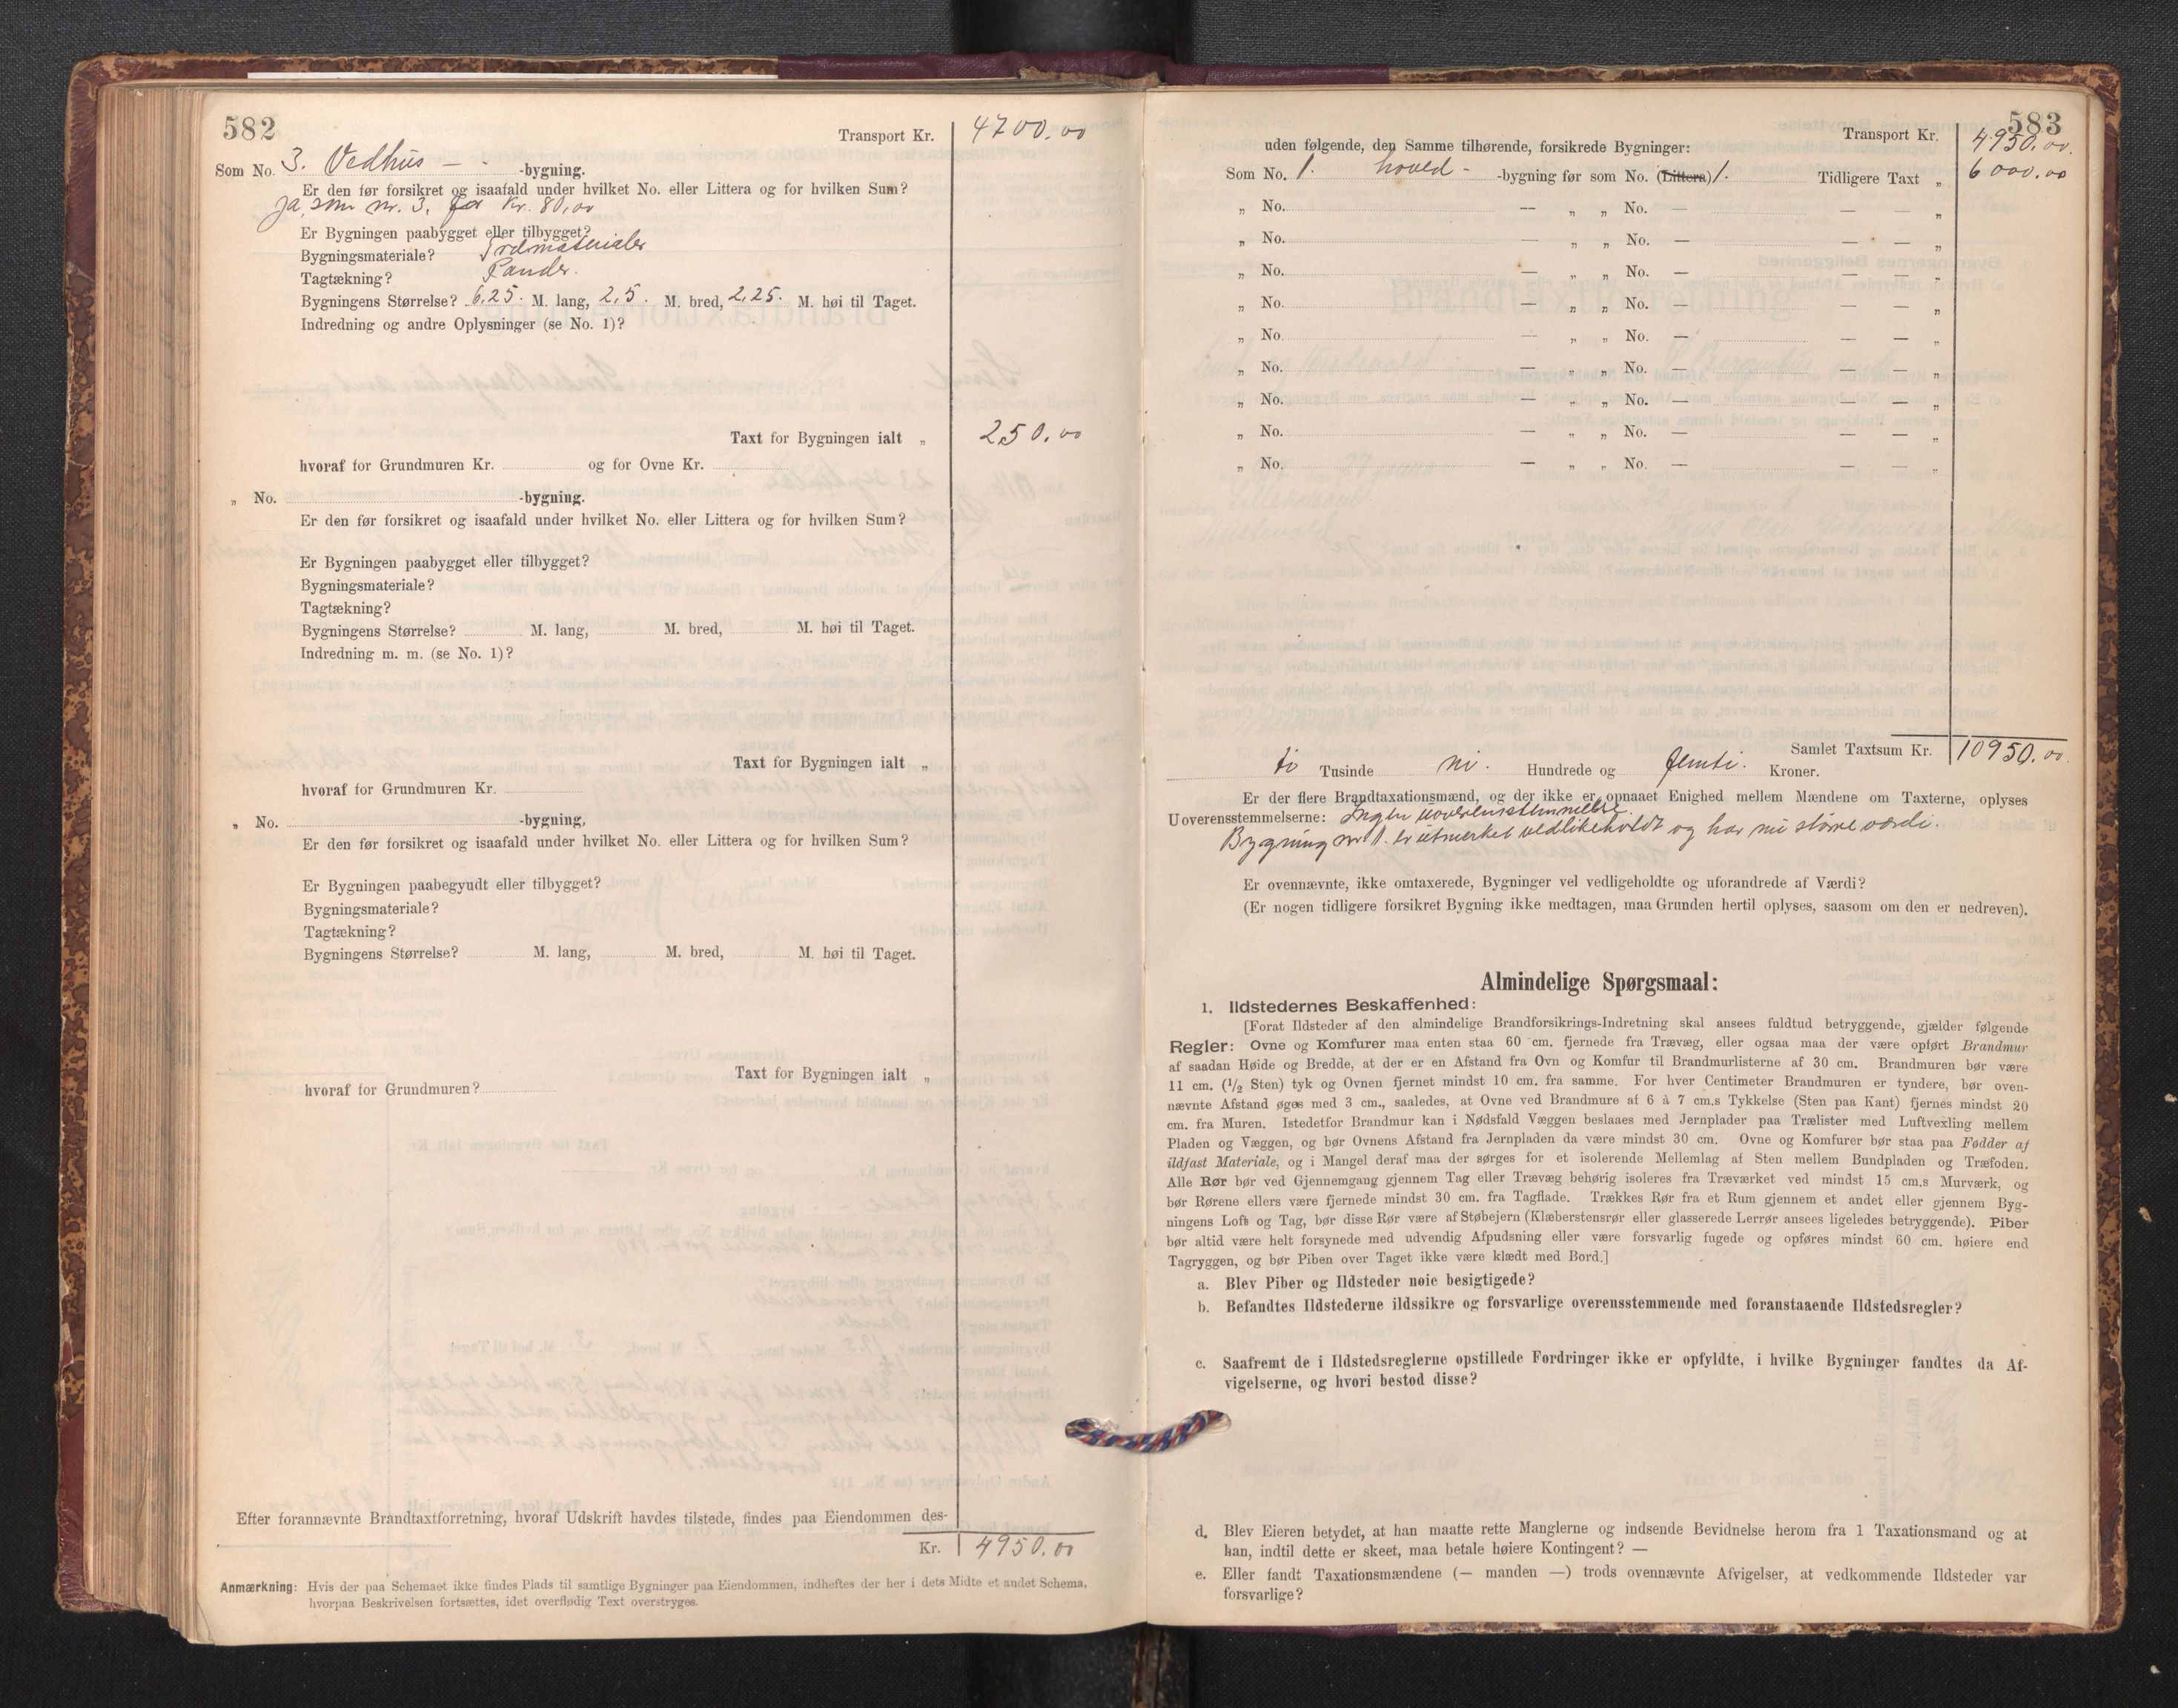 582
Transport Kr. 4700.00
Som No. 3. Vedhus — - -bygning.
Er den før forsikret og isaafald under hvilket No. eller Littera og for hvilken Sum?
Ja, som nr. 3. for Kr. 80,00
Er Bygningen paabygget eller tilbygget?
Bygningsmateriale? Trematerialer
Tagtækning? Pander.
Bygningens Størrelse? 6,25. M. lang, 2,5. M. bred, 2,25. M. høi til Taget.
Indredning og andre Oplysninger (se No. 1)?
Taxt for Bygningen ialt „ 250.00
hvoraf for Grundmuren Kr. og for Ovne Kr.
„ No. -bygning.
Er den før forsikret og isaafald under hvilket No. eller Littera og for hvilken Sum?
Er Bygningen paabygget eller tilbygget?
Bygningsmateriale?
Tagtækning?
Bygningens Størrelse? M. lang, M. bred, M. høi til Taget.
Indredning m. m. (se No. 1)?
Taxt for Bygningen ialt „
hvoraf for Grundmuren Kr.
„ No. -bygning,
Er den før forsikret og isaafald under hvilket No. eller Littera og for hvilken Sum?
Er Bygningen paabegyudt eller tilbygget?
Bygningsmateriale?
Tagtækning?
Bygningens Størrelse? M. lang, M. bred, M. høi til Taget.
Taxt for Bygningen ialt „
hvoraf for Grundmuren?
Efter forannævnte Brandtaxtforretning, hvoraf Udskrift havdes tilstede, findes paa Eiendommen des-
Kr. 4950.00
Anmærkning: Hvis der paa Schemaet ikke findes Plads til samtlige Bygninger paa Eiendommen, indheftes der her i dets Midte et andet Schema,
hvorpaa Beskrivelsen fortsættes, idet overflødig Text overstryges.
583
Transport Kr. 4950.00.
uden følgende, den Samme tilhørende, forsikrede Bygninger:
Som No. 1. hoved- -bygning før som No. (Littera) 1. Tidligere Taxt „ 6000.00
„ No. — „ „ No. — — — „
„ No. — „ „ No. — — — „
„ No. — „ „ No. — — — „
„ No. — „ „ No. — — — „
„ No. — „ „ No. — — — „
„ No. — „ „ No. — — — „
„ No. — „ „ No. — — — „
„ No. — „ „ No. — — — „
„ No. — „ „ No. — — — „
Samlet Taxtsum Kr. 10950.00
ti Tusinde ni. Hundrede og femti. Kroner.
Er der flere Brandtaxationsmænd, og der ikke er opnaaet Enighed mellem Mændene om Taxterne, oplyses
Uoverensstemmelserne: Ingen uoverensstemmelse.
Bygning nr 1. er utmerket vedlikeholdt og har nu større værdi.
Er ovennævnte, ikke omtaxerede, Bygninger vel vedligeholdte og uforandrede af Værdi?
(Er nogen tidligere forsikret Bygning ikke medtagen, maa Grunden hertil oplyses, saasom om den er nedreven).
Almindelige Spørgsmaal:
1. Ildstedernes Beskaffenhed:
[Forat Ildsteder af den almindelige Brandforsikrings-Indretning skal ansees fuldtud betryggende, gjælder følgende
Regler: Ovne og Komfurer maa enten staa 60 cm. fjernede fra Trævæg, eller ogsaa maa der være opført Brandmur
af saadan Høide og Bredde, at der er en Afstand fra Ovn og Komfur til Brandmurlisterne af 30 cm. Brandmuren bør være
11 cm. (1/2 Sten) tyk og Ovnen fjernet mindst 10 cm. fra samme. For hver Centimeter Brandmuren er tyndere, bør oven-
nævnte Afstand øges med 3 cm., saaledes, at Ovne ved Brandmure af 6 à 7 cm.s Tykkelse (Sten paa Kant) fjernes mindst 20
cm. fra Muren. Istedetfor Brandmur kan i Nødsfald Væggen beslaaes med Jernplader paa Trælister med Luftvexling mellem
Pladen og Væggen, og bør Ovnens Afstand fra Jernpladen da være mindst 30 cm. Ovne og Komfurer bør staa paa Fødder af
ildfast Materiale, og i Mangel deraf maa der sørges for et isolerende Mellemlag af Sten mellem Bundpladen og Træfoden.
Alle Rør bør ved Gjennemgang gjennem Tag eller Trævæg behørig isoleres fra Træværket ved mindst 15 cm.s Murværk, og
bør Rørene ellers være fjernede mindst 30 cm. fra Tagflade. Trækkes Rør fra et Rum gjennem et andet eller gjennem Byg-
ningens Loft og Tag, bør disse Rør være af Støbejern (Klæberstensrør eller glasserede Lerrør ansees ligeledes betryggende). Piber
bør altid være helt forsynede med udvendig Afpudsning eller være forsvarlig fugede og opføres mindst 60 cm. høiere end
Tagryggen, og bør Piben over Taget ikke være klædt med Bord.]
a. Blev Piber og Ildsteder nøie besigtigede?
b. Befandtes Ildstederne ildssikre og forsvarlige overensstemmende med foranstaaende Ildstedsregler?
c. Saafremt de i Ildstedsreglerne opstillede Fordringer ikke er opfyldte, i hvilke Bygninger fandtes da Af-
vigelserne, og hvori bestod disse?
d. Blev Eieren betydet, at han maatte rette Manglerne og indsende Bevidnelse herom fra 1 Taxationsmand og at
han, indtil dette er skeet, maa betale høiere Kontingent? —
e. Eller fandt Taxationsmændene (— manden —) trods ovennævnte Afvigelser, at vedkommende Ildsteder var
forsvarlige?